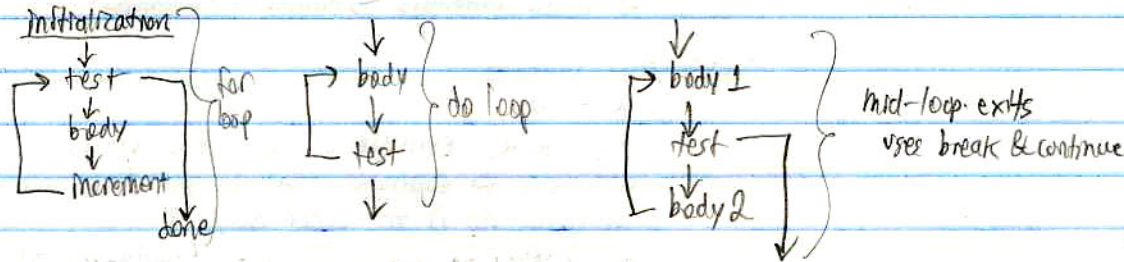 initialization
test
body
increment
done
for
loop
body
test
do loop
body 1
test
body 2
mid-loop exits
uses break & continue